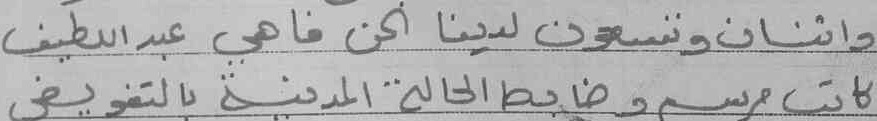 واثنان وتسعون لدينا نحن فاهي عبد اللطيف
كاتب مرسم و ضابط الحالة المدنية بالتفويض